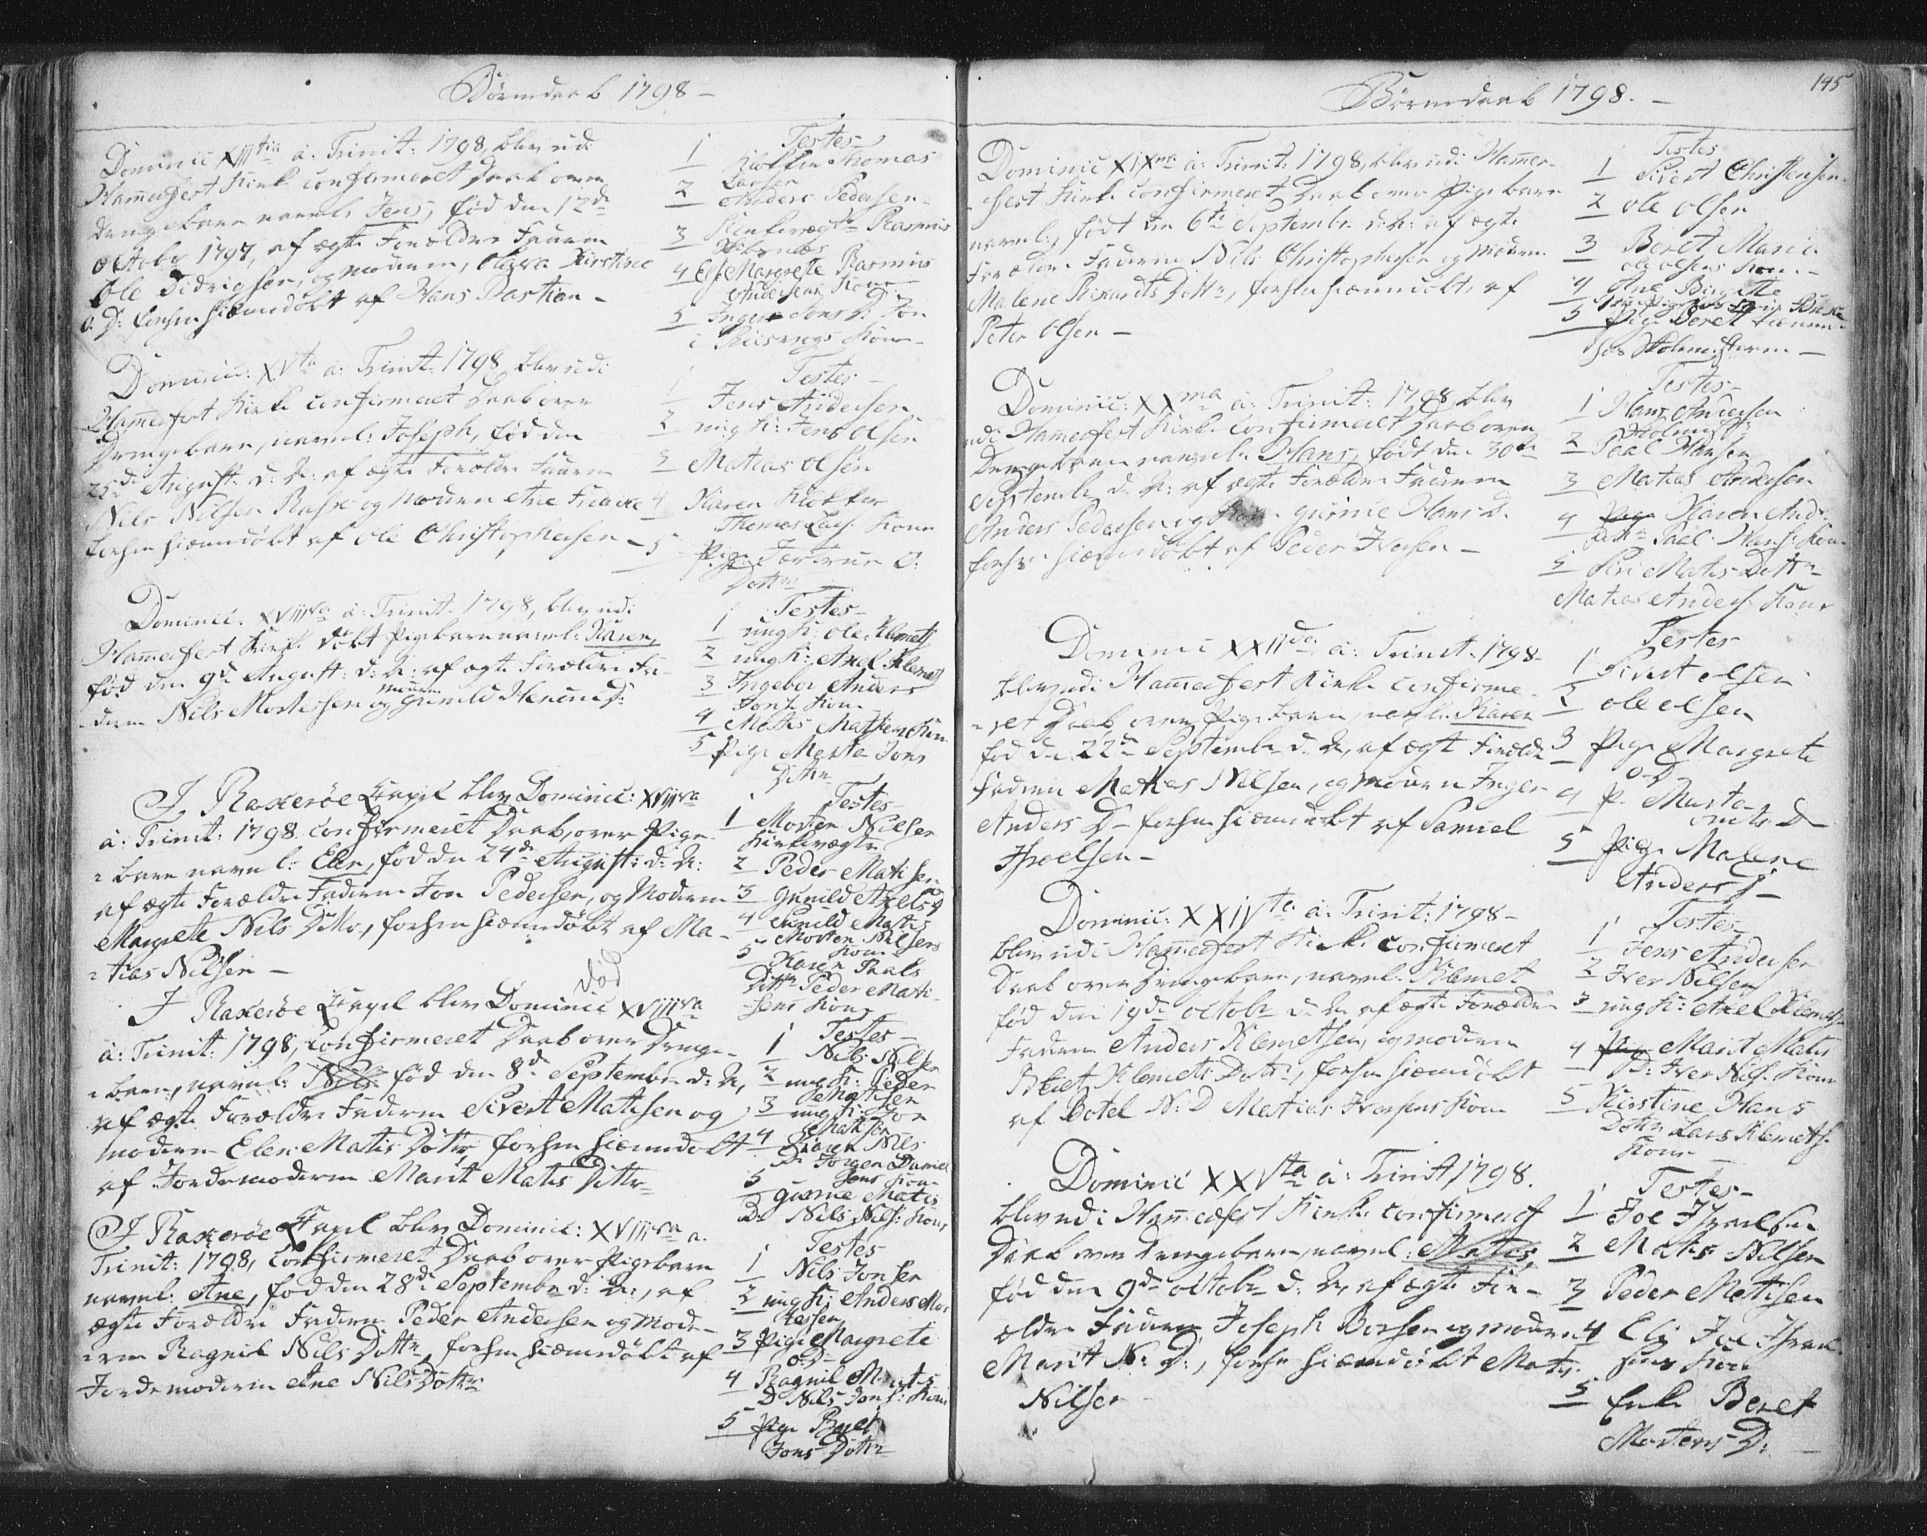 Börnedaab 1798 -
Dominic XIII tia a: Trinit: 1798, blev udi
Hamerfest Kirke confirmeret Daab over
Drengebarn navnl: Jens, fød den 12de
October 1797, af ægte Forældre Faderen
Ole Didrigsen, og moderen, Olava Kirstine
O: D: forhen hiemmedøbt af Hans Bastian -
Testes
1 Klokker Thomas
Larsen
2 Anders Pedersen -
3 Kirkeværgen Rasmus
4 Margrete Rasmus
Andersens Kone -
5 Inger Jons D: Jon
Kone -
Dominic: XV ta a: Trinit: 1798, blev udi
Hamerfest Kirke confirmeret Daab over
Drengebarn, navnl: Joseph, fød den
25de August: d: A: af ægte Forældre Faderen
Nils Nilsen Rask og Moderen Ane
forhen hiemmedøbt af Ole Christophersen -
Testes -
1 Jens Andersen
2 ung K: Jens Olsen
3 Matias Olsen
4 Karen Klokker
Thomas Lars: Kone
5 Pige O:
Dotter
Dominic: XVIII va a: Trinit: 1798, blev udi
Hamerfest Kirke døbt Pigebarn navnl: Karen,
fød den 9de August: d: A: af ægte Forældre Fa-
deren Nils Mortensen og moderen Gunild D:
Testes -
1 ung K: Ole Klemets:
2 ung K: Axel Klemets:
3 Ingebor Anders
Kone
4 Matis Kone
5 Pige Merta Jons
Dotter
I Raxerøe Capel blev Dominic: XVIII va
a: Trinit: 1798 confirmeret Daab, over Pige-
barn navnl: Elen, fød den 24de August: d: A:
af ægte Forældre Faderen Jon Pedersen, og Moderen
Margrete Nils Dotter, forhen hiemmedøbt af Ma-
tias Nilsen -
Testes -
1 Morten Nilsen
Kirkeværge
2 Peder Matisen
3 Gunild Axels D
4 Gunild Matis
Morten Nilsens
Kone
5 Karen Paals
Dotter Peder Mati-
sens Kone
død
I Raxerøe Capel blev Dominic XVIII va
a: Trinit: 1798, confirmeret Daab over Drenge-
barn, navnl: Nils fød den 8de September d: A,
af ægte Forældre Faderen Sivert Matisen og
moderen Elen Matis Dotter, forhen hiemmedøbt
af Jordemoderen Marit Matis Dotter
Testes -
1 Nils Nilsen
2 ung K: Peder
Matisen
3 ung K: Jon
Matisen
4 Karen Nils
D: Jørgen Daniel
sens Kone
5 Gurine Matis
D: Nils Nils: Kone
I Raxerøe Capel blev Dominic: XVIII va a.
Trinit: 1798, confirmeret Daab over Pigebarn
navnl: Ane, fød den 28de September d: A:, af
ægte Forældre Faderen Peder Andersen og mode-
ren Ragnil Nils Dotter, forhen hiemmedøbt af
Jordemoderen Ane Nils Dotter
Testes
1 Nils Jonsen
2 ung K: Anders Mor-
tensen
3 Pige Margrete
O: D:
4 Ragnil Matis
D: Nils Jons: Kone
5 Pige Beret
Jons Dotter
145
Börnedaab 1798. -
Dominic XIX na a: Trinit: 1798, blev udi Hamer-
fest Kirke confirmeret Daab over Pigebarn
navnl:, født den 6te September d: A: af ægte
Forældre Faderen Nils Christophersen og moderen
Malene Rikards Dotter, forhen hiemmedøbt, af
Peter Olsen -
Testes
1 Sivert Christensen
2 Ole Olsen
3 Beret Maria
Ole Olsens Kone -
4 Ane Birgitte
5 Pige Beret
hos -
Dominic: XX ma a: Trinit: 1798, blev
udi Hamerfest Kirke confirmeret Daab over
Drengebarn navnl: Hans, født den 30te
September d: A: af ægte Forældre Faderen
Anders Pedersen og Gurine Hans D.
forhen hiemmedøbt af Peder Iversen -
Testes -
1 Hans Andersen
2 Paal Hansen
3 Matias Andersen
4 Karen And:
Paal Hans: Kone
5 Siri Matis Dotter
Matias Anders: Kone
Dominic XXII da a: Trinit: 1798 -
blev udi Hamerfest Kirke confirme-
ret Daab over Pigebarn, navnl: Karen
fød den 22de September d: A, af ægte Forældre
Faderen Matias Nilsen, og moderen Inger
Anders D - forhen hiemmedøbt af Samuel
Isralsen -
Testes
1 Sivert Olsen
2 Ole Olsen
3 Pige Margrete
O: D
4 P: Marta
D
5 Pige Malene
Anders D -
Dominic: XXIV ta a: Trinit: 1798 -
blev udi Hamerfest Kirke confirmeret
Daab over Drengebarn, navnl: Klemet
fød den 19de Octobr d: A af ægte Forældre
Faderen Anders Klemetsen, og moderen
Klemets Dotter, forhen hiemmedøbt
af Botel N: D Matias Iversens Kone
Testes -
1 Jens Andersen
2 Iver Nilsen
3 ung K: Axel Klemetsen
4 Marit Matis
D: Iver Nils: Kone
5 Kirstine Hans
Dotter Lars Klemets:
Kone -
Dominic XXV ta a: Trinit 1798.
blev udi Hamerfest Kirke confirmeret
Daab over Drengebarn, navnl: Matis,
fød den 9de Octobr d: A, af ægte For-
ældre Faderen Joseph Borsen og moderen
Marit N: D:, forhen hiemmedøbt Matis
Nilsen
Testes -
1 Joe Isralsen
2 Matis Nilsen
3 Peder Matisen
4 Eli Joe Isral-
sens Kone
5 Enke Beret
Mortens D: -